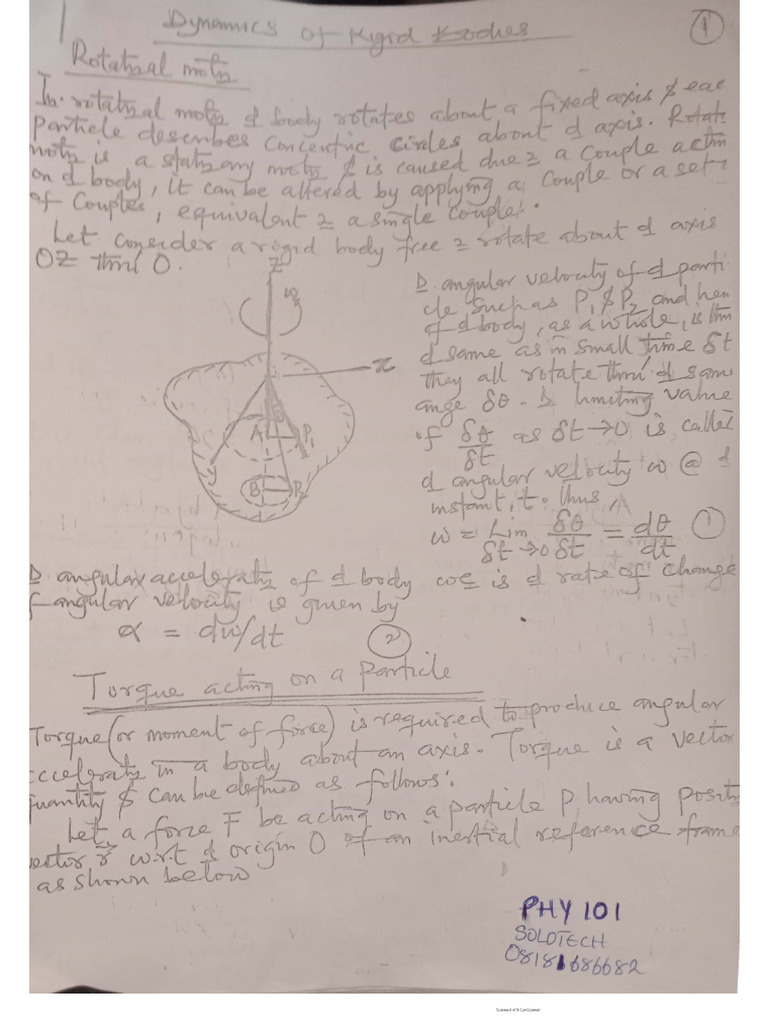 Dynamics of Rigid Bodies
1
Rotatnal motn
In rotatnal motn d body rotates about a fixed axis & eac
particle describes concentric circles about d axis. Rotatn
motn is a statnary motn & is caused due 2 a couple actin
on d body, It can be altered by applying a couple or a set
of couples, equivalent 2 a single couple.
Let consider a rigid body free 2 rotate about d axis
OZ thru O.
Z
ω
x
A
P1
B
P2
D angular velocity of d parti
cle such as P1 & P2 and hen
of d body, as a whole, is thn
d same as in small time δt
they all rotate thru d sam
ange δθ. D limiting value
of δθ/δt as δt → 0 is called
d angular velocity ω @ d
instant, t. Thus,
ω = Lim δt→0 δθ/δt = dθ/dt 1
D angular acceleratn of d body wc is d rate of change
f angular velocity is given by
α = dω/dt 2
Torque acting on a Particle
Torque (or moment of force) is required to produce angular
acceleratn in a body about an axis. Torque is a vector
quantity & can be defined as follows:
Let a force F be acting on a particle P having positn
vector r w.r.t d origin O of an inertial reference frame
as shown below
PHY 101
SOLOTECH
08181686682